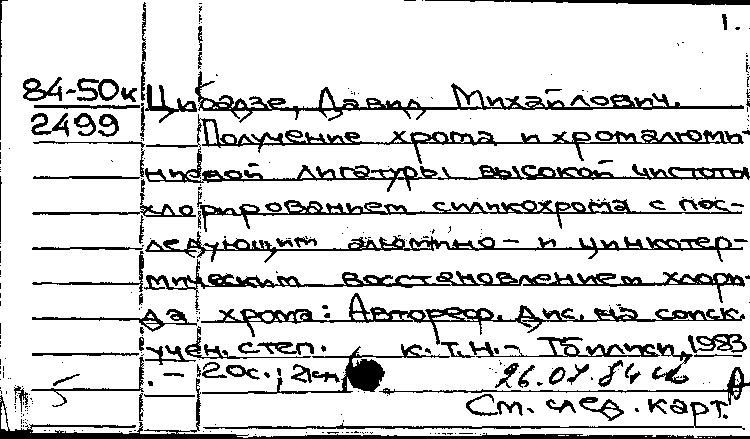 1.
84-50к Цибадзе, Давид Михайлович.
2499 Получение хрома и хромалюми-
ниевой лигатуры высокой чистоты
хлорированием силикохрома с пос-
ледующим алюмино- и цинкотер-
мическим восстановлением хлори-
да хрома: Автореф. Дис. на соиск.
учен. степ. к.т.н. - Тбилиси, 1983
. - 20с.; 21см
5 26.07.84
См. след. карт.